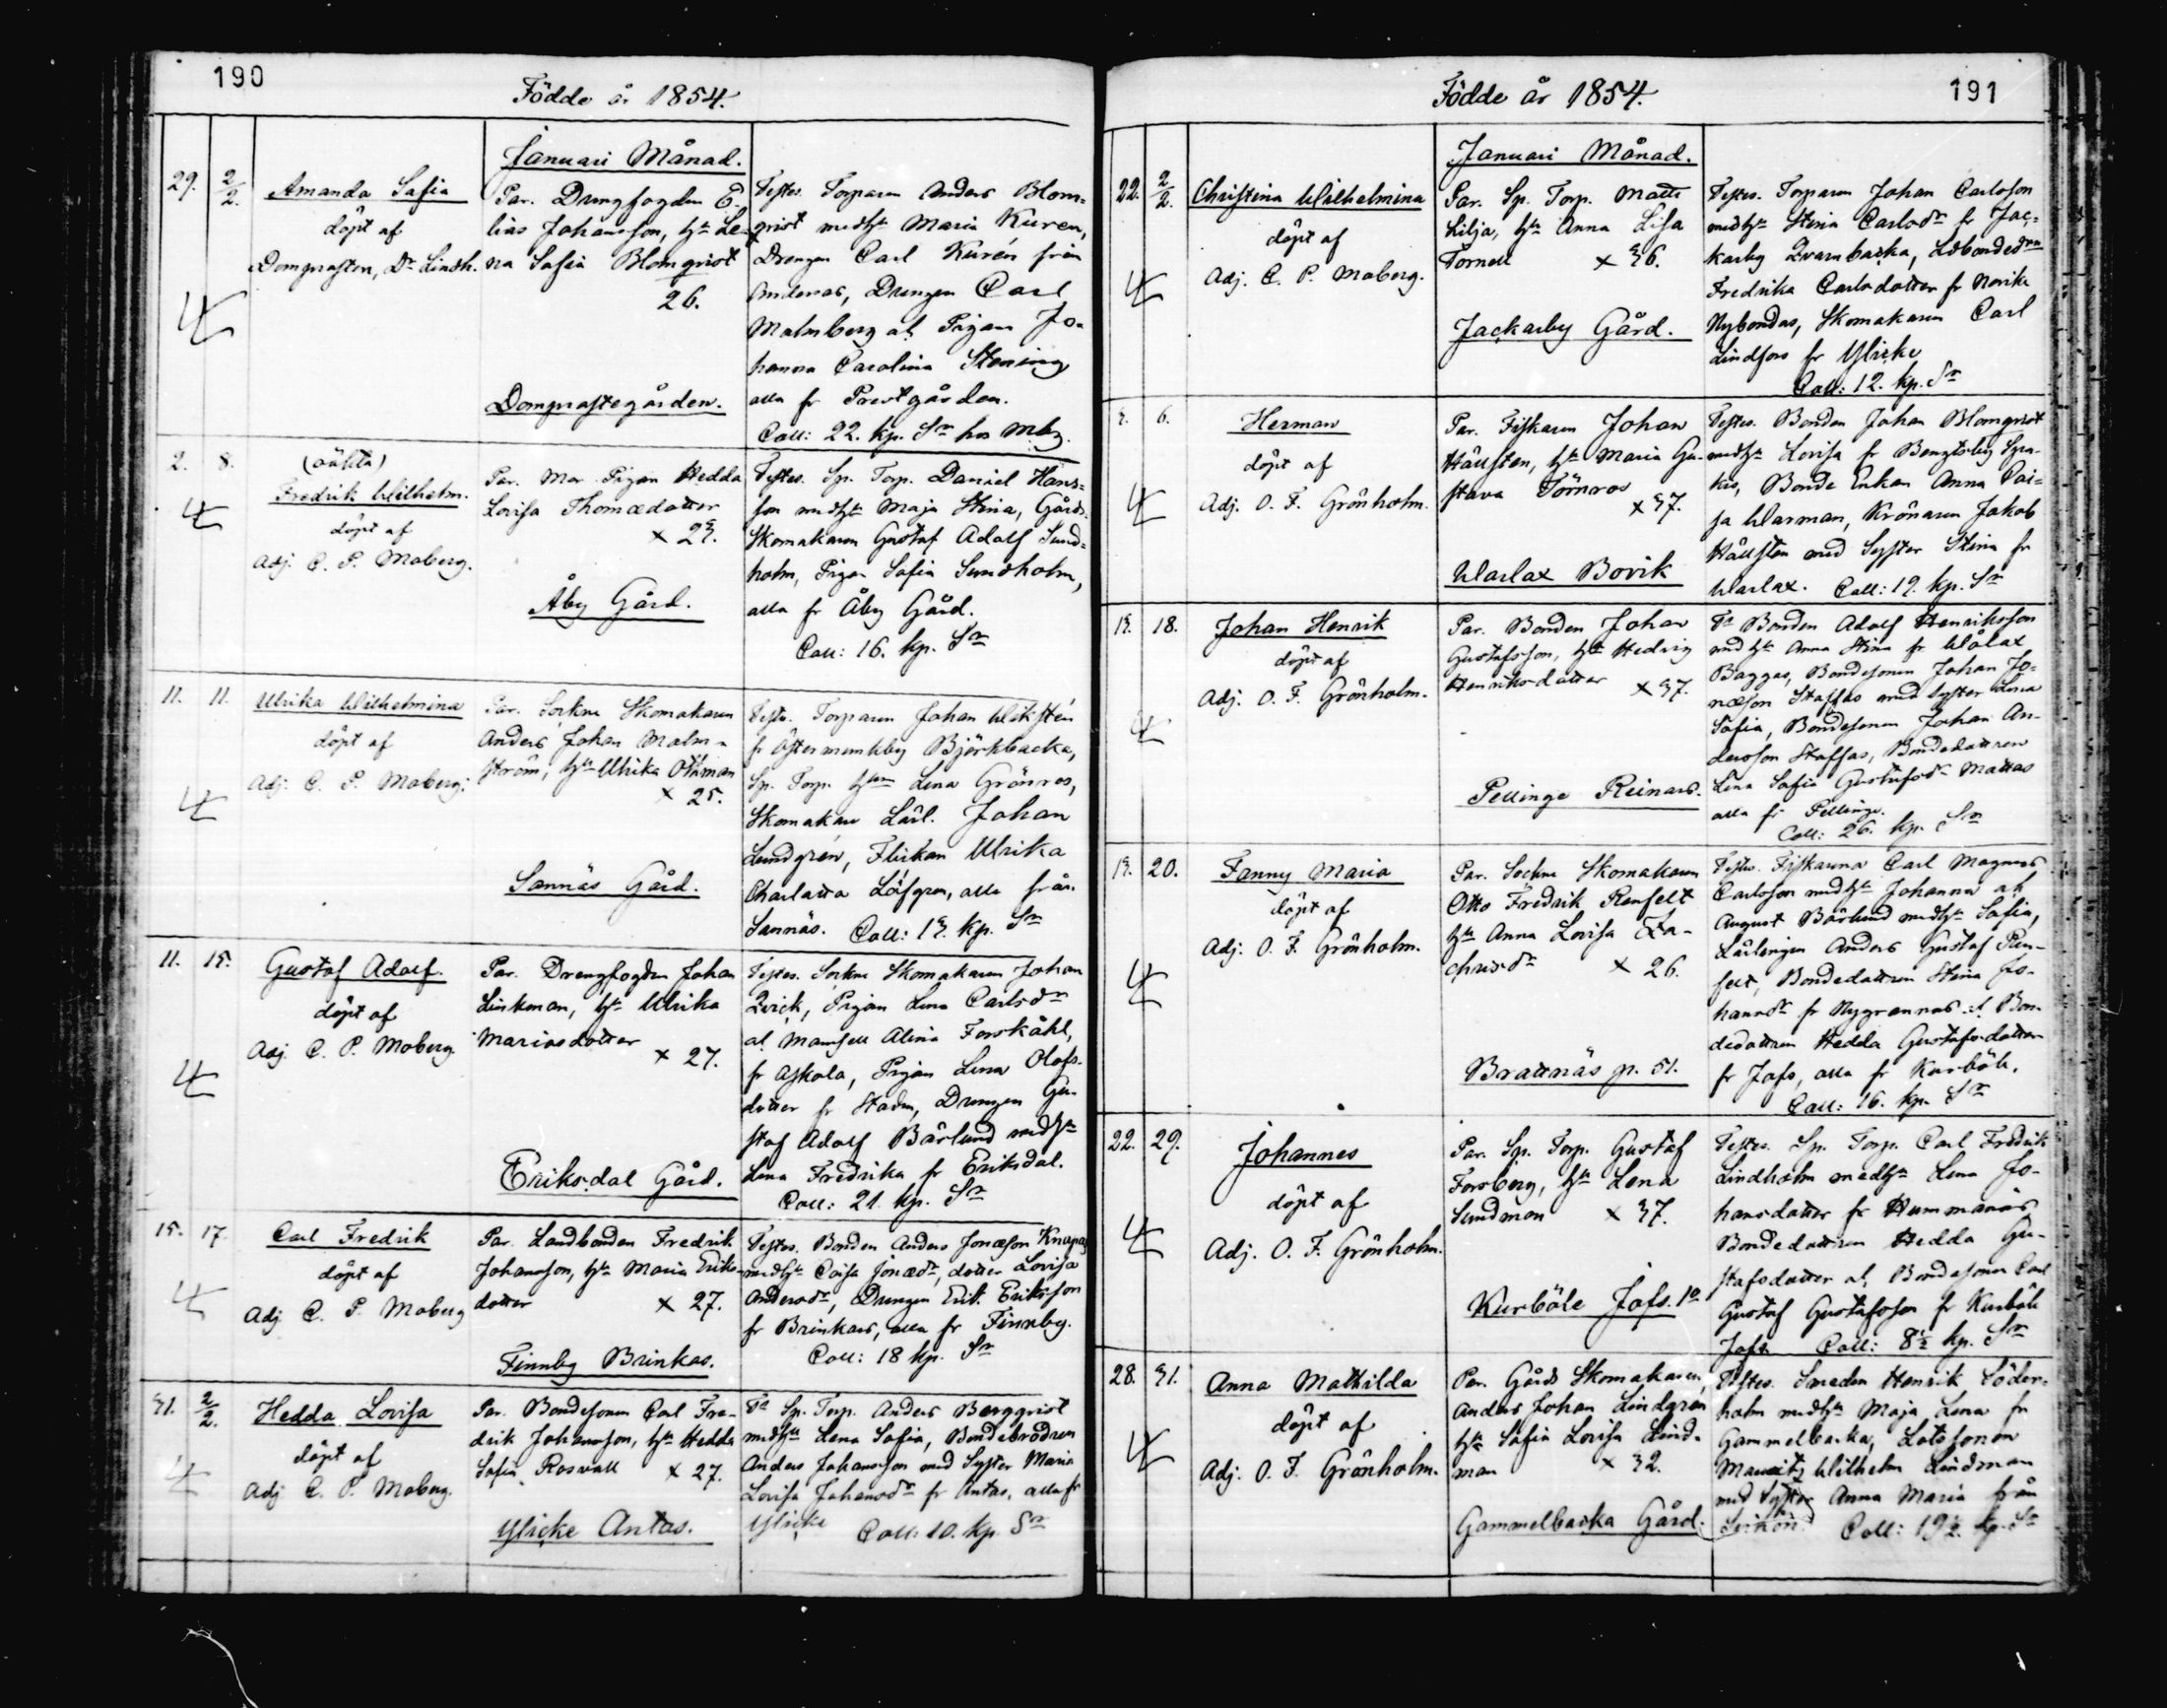 190
Födde år 1854.
Januari Månad.
29. 2/2.
Amanda Safia
döpt af
Domprosten, Dr Lindh.
Par. Drengfogden E-
lias Johansson, hu Le-
na Safia Blomqvist
26.
Domprostegården.
Testes. Torparen Anders Blom-
qvist medhu Maria Kuren,
Drengen Carl Kurén från
Andersas, Drengen Carl
Malmberg at Pigan Jo-
hanna Carolina Stening
alla fr Prestgården.
Coll: 22. kp. Sr hos Mbg.
2. 8.
(oäkta)
Fredrik Wilhelm.
döpt af
Adj. C. P. Moberg.
Par. Mor Pigan Hedda
Lovisa Thomædotter
x 23.
Åby Gård.
Testes. Sp. Torp. Daniel Hans-
son medhu Maja Stina, Gårds
Skomakaren Gustaf Adolf Sund-
holm, Pigan Safia Sundholm,
alla fr Åby Gård.
Coll: 16. kp. Sr
11. 11.
Ulrika Wilhelmina
döpt af
Adj. C. P. Moberg.
Par. Sockne Skomakaren
Anders Johan Malm-
ström, hu Ulrika Öhman
x 25.
Sannäs Gård.
Testes. Torparen Johan Wiksten
fr Östermunkby Björkbacka,
Sp. Torp. hun Lena Grönros,
Skomakare Lärl. Johan
Lundgrén, Flickan Ulrika
Charlotta Löfgren, alla från
Sannäs. Coll: 13. kp. Sr
11. 15.
Gustaf Adolf.
döpt af
Adj. C. P. Moberg.
Par. Drengfogden Johan
Linkman, hu Ulrika
Mariasdotter
x 27.
Eriksdal Gård.
Testes. Sockne Skomakaren Johan
Qvick, Pigan Lena Carlsdr
at Mamsell Alina Forskåhl,
fr Askola, Pigan Lena Olofs-
dotter fr Staden, Drengen Gu-
staf Adolf Bärlund medhu
Lena Fredrika fr Eriksdal.
Coll: 21. kp. Sr
15. 17.
Carl Fredrik
döpt af
Adj C. P. Moberg
Par. Landbonden Fredrik
Johansson, hu Maria Eriks-
dotter x 27.
Finnby Brinkas.
Testes. Bonden Anders Jonæson Knapas
medhu Caisa Jonædr, dotter Lovisa
Andersdr, Drengen Erik Eriksson
fr Brinkas, alla fr Finnby.
Coll: 18 kp. Sr
31. 2/2.
Hedda Lovisa
döpt af
Adj C. P. Moberg.
Par. Bondesonen Carl Fre-
drik Johansson, hu Hedda
Safia Rosvall x 27.
Ylicke Antas.
Ts Sp. Torp. Anders Bergqvist
medhu Lena Safia, Bondebrodren
Anders Johansson med Syster Maria
Lovisa Johansdr fr Antas, alla fr
Ylicke Coll: 10. kp. Sr
191
Födde år 1854.
Januari Månad.
22. 2/2.
Christina Wilhelmina
döpt af
Adj. C. P. Moberg.
Par. Sp. Torp. Matts
Lilja, hu Anna Lisa
Tornell x 36.
Jackarby Gård.
Testes. Torparen Johan Carlsson
medhu Stina Carlsdr fr Jac-
karby Qvarnbacka, Ldbondedrn
Fredrika Carlsdotter fr Norike
Nybondas, Skomakaren Carl
Lindfors fr Ylicke
Coll: 12. kp. Sr
3. 6.
Herman
döpt af
Adj. O. F. Grönholm.
Par. Fiskaren Johan
Hällsten, hu Maria Gu-
stava Törnros
x 37.
Warlax Bovik
Testes. Bonden Johan Blomqvist
medhu Lovisa fr Bengtsby
Bonde Enkan Anna Cai-
sa Warman, Krönaren Jakob
Hällsten med Syster Stina fr
Warlax. Coll: 12. kp. Sr
13. 18.
Johan Henrik
döpt af
Adj. O. F. Grönholm.
Par. Bonden Johan
Gustafsson, hu Hedvig
Henriksdotter x 37.
Pellinge Reinars.
Ts Bonden Adolf Henriksson
med hu Anna Stina fr Wålax
Baggas, Bondesonen Johan Jo-
næson Staffas med Syster Lena
Safia, Bondesonen Johan An-
dersson Staffas, Bondedottren
Lena Safia Gustafsdr Mattas
alla fr Pellinge.
Coll: 26. kp. Sr
13. 20.
Fanny Maria
döpt af
Adj. O. F. Grönholm.
Par. Sockne Skomakaren
Otto Fredrik Renfelt
hu Anna Lovisa Za-
chrisdr x 26.
Brattnäs p. 51.
Testes. Fiskarena Carl Magnus
Carlsson medhu Johanna at
August Bärlund medhu Safia,
Lärlingen Anders Gustaf Ren-
felt, Bondedottren Stina Jo-
hansdr fr Nygrannas at Bon-
dedottren Hedda Gustafsdotter
fr Jofs, alla fr Kurböle.
Coll: 16. kp. Sr
22. 29.
Johannes
döpt af
Adj. O. F. Grönholm.
Par. Sp. Torp. Gustaf
Forsberg, hu Lena
Sundman x 37.
Kurböle Jofs. 10
Testes. Sp. Torp. Carl Fredrik
Lindholm medhu Lena Jo-
hansdotter fr Hummanäs
Bondedottren Hedda Gu-
stafsdotter at Bondesonen Carl
Gustaf Gustafsson fr Kurböle
Jofs. Coll: 8½ kp. Sr
28. 31.
Anna Mathilda
döpt af
Adj. O. F. Grönholm.
Par. Gårds Skomakaren
Anders Johan Lindgren
hu Safia Lovisa Lind-
man x 32.
Gammelbacka Gård.
Testes. Smeden Henrik Söder-
holm medhu Maja Lena fr
Gammelbacka, Lotssonen
Mauritz Wilhelm Lindman
med Syster Anna Maria från
Coll: 19½ kp. Sr